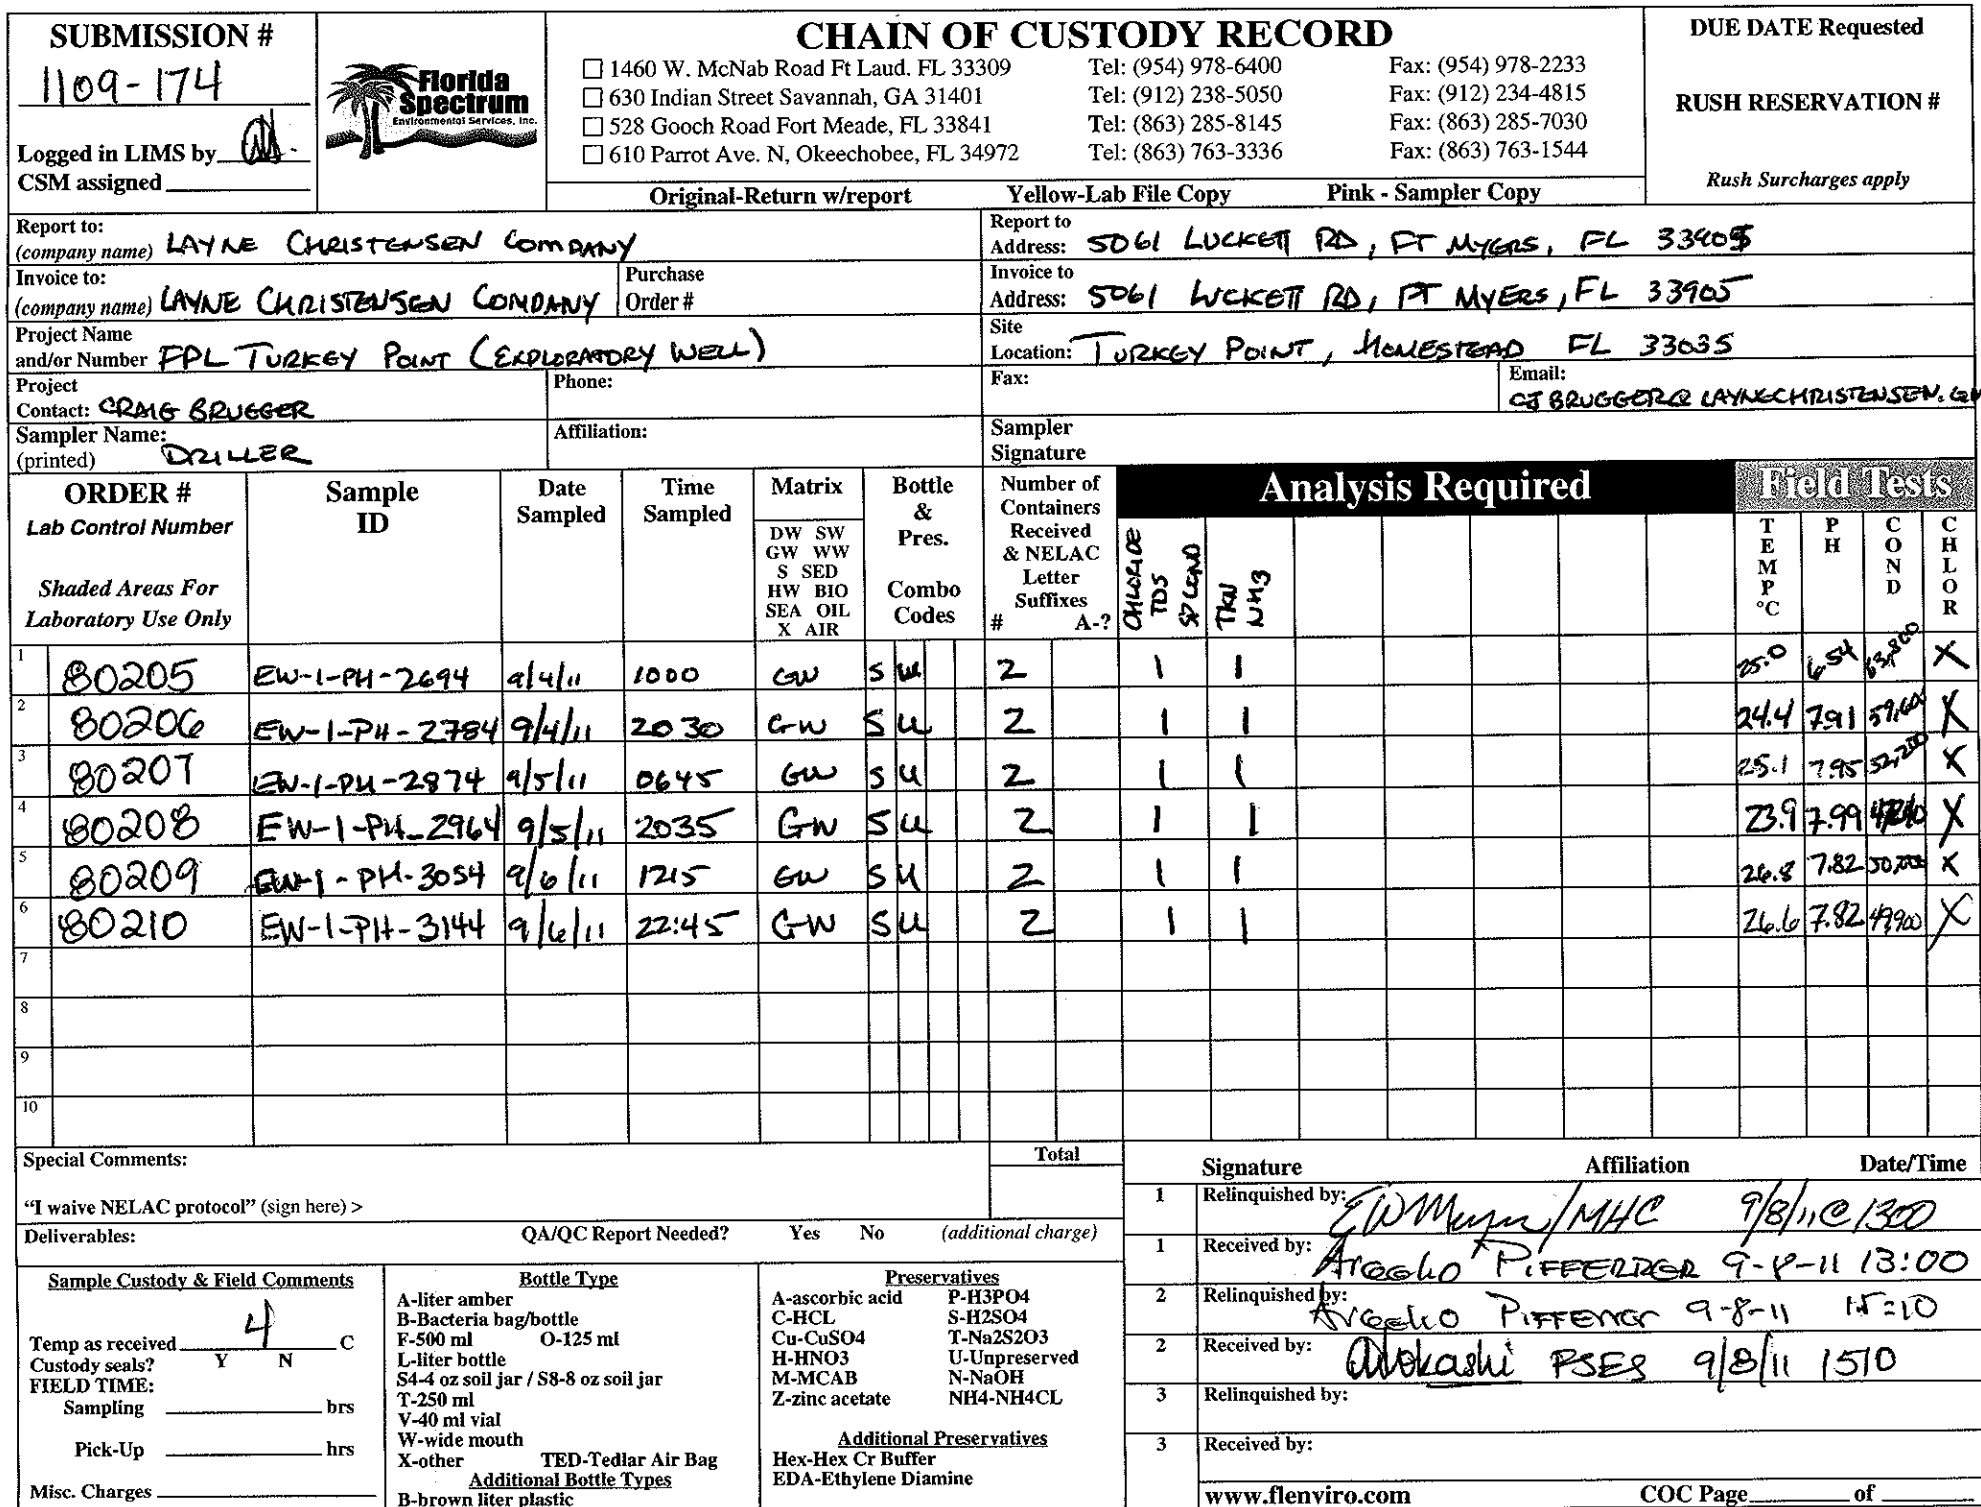 SUBMISSION #
1109-174
Logged in LIMS by
CSM assigned
Florida
Spectrum
Environmental Services, Inc.
CHAIN OF CUSTODY RECORD
☐ 1460 W. McNab Road Ft Laud. FL 33309 Tel: (954) 978-6400 Fax: (954) 978-2233
☐ 630 Indian Street Savannah, GA 31401 Tel: (912) 238-5050 Fax: (912) 234-4815
☐ 528 Gooch Road Fort Meade, FL 33841 Tel: (863) 285-8145 Fax: (863) 285-7030
☐ 610 Parrot Ave. N, Okeechobee, FL 34972 Tel: (863) 763-3336 Fax: (863) 763-1544
Original-Return w/report Yellow-Lab File Copy Pink - Sampler Copy
DUE DATE Requested
RUSH RESERVATION #
Rush Surcharges apply
Report to:
(company name) LAYNE CHRISTENSEN COMPANY
Report to
Address: 5061 LUCKETT RD, FT MYERS, FL 33905
Invoice to:
(company name) LAYNE CHRISTENSEN COMPANY
Purchase
Order #
Invoice to
Address: 5061 LUCKETT RD, FT MYERS, FL 33905
Project Name
and/or Number FPL TURKEY POINT (EXPLORATORY WELL)
Site
Location: TURKEY POINT, HOMESTEAD FL 33035
Project
Contact: CRAIG BRUGGER
Phone:
Fax:
Email:
CJBRUGGER@LAYNECHRISTENSEN.
Sampler Name:
(printed) DRILLER
Affiliation:
Sampler
Signature
ORDER #
Lab Control Number
Shaded Areas For
Laboratory Use Only
Sample
ID
Date
Sampled
Time
Sampled
Matrix
DW SW
GW WW
S SED
HW BIO
SEA OIL
X AIR
Bottle
&
Pres.
Combo
Codes
Number of
Containers
Received
& NELAC
Letter
Suffixes
# A-?
Analysis Required
CHLORIDE
TDS
SP COND
TKN
NH3
Field Tests
TEMP °C
PH
COND
CHLOR
1 80205 EW-1-PH-2694 9/4/11 1000 GW S U 2 1 1 25.0 6.54 63,800 X
2 80206 EW-1-PH-2784 9/4/11 2030 GW S U 2 1 1 24.4 7.91 59,600 X
3 80207 EW-1-PH-2874 9/5/11 0645 GW S U 2 1 1 25.1 7.95 52,200 X
4 80208 EW-1-PH-2964 9/5/11 2035 GW S U 2 1 1 23.9 7.99 X
5 80209 EW-1-PH-3054 9/6/11 1215 GW S U 2 1 1 26.8 7.82 X
6 80210 EW-1-PH-3144 9/6/11 22:45 GW S U 2 1 1 26.6 7.82 49,900 X
7
8
9
10
Special Comments:
Total
"I waive NELAC protocol" (sign here) >
Deliverables: QA/QC Report Needed? Yes No (additional charge)
Signature Affiliation Date/Time
1 Relinquished by: EW /MHC 9/8/11 @ 1300
1 Received by: PIFFERRER 9-8-11 13:00
2 Relinquished by: PIFFERRER 9-8-11 15:10
2 Received by: FSES 9/8/11 1510
3 Relinquished by:
3 Received by:
Sample Custody & Field Comments
Temp as received 4 C
Custody seals? Y N
FIELD TIME:
Sampling hrs
Pick-Up hrs
Misc. Charges
Bottle Type
A-liter amber
B-Bacteria bag/bottle
F-500 ml O-125 ml
L-liter bottle
S4-4 oz soil jar / S8-8 oz soil jar
T-250 ml
V-40 ml vial
W-wide mouth
X-other TED-Tedlar Air Bag
Additional Bottle Types
B-brown liter plastic
Preservatives
A-ascorbic acid P-H3PO4
C-HCL S-H2SO4
Cu-CuSO4 T-Na2S2O3
H-HNO3 U-Unpreserved
M-MCAB N-NaOH
Z-zinc acetate NH4-NH4CL
Additional Preservatives
Hex-Hex Cr Buffer
EDA-Ethylene Diamine
www.flenviro.com COC Page of